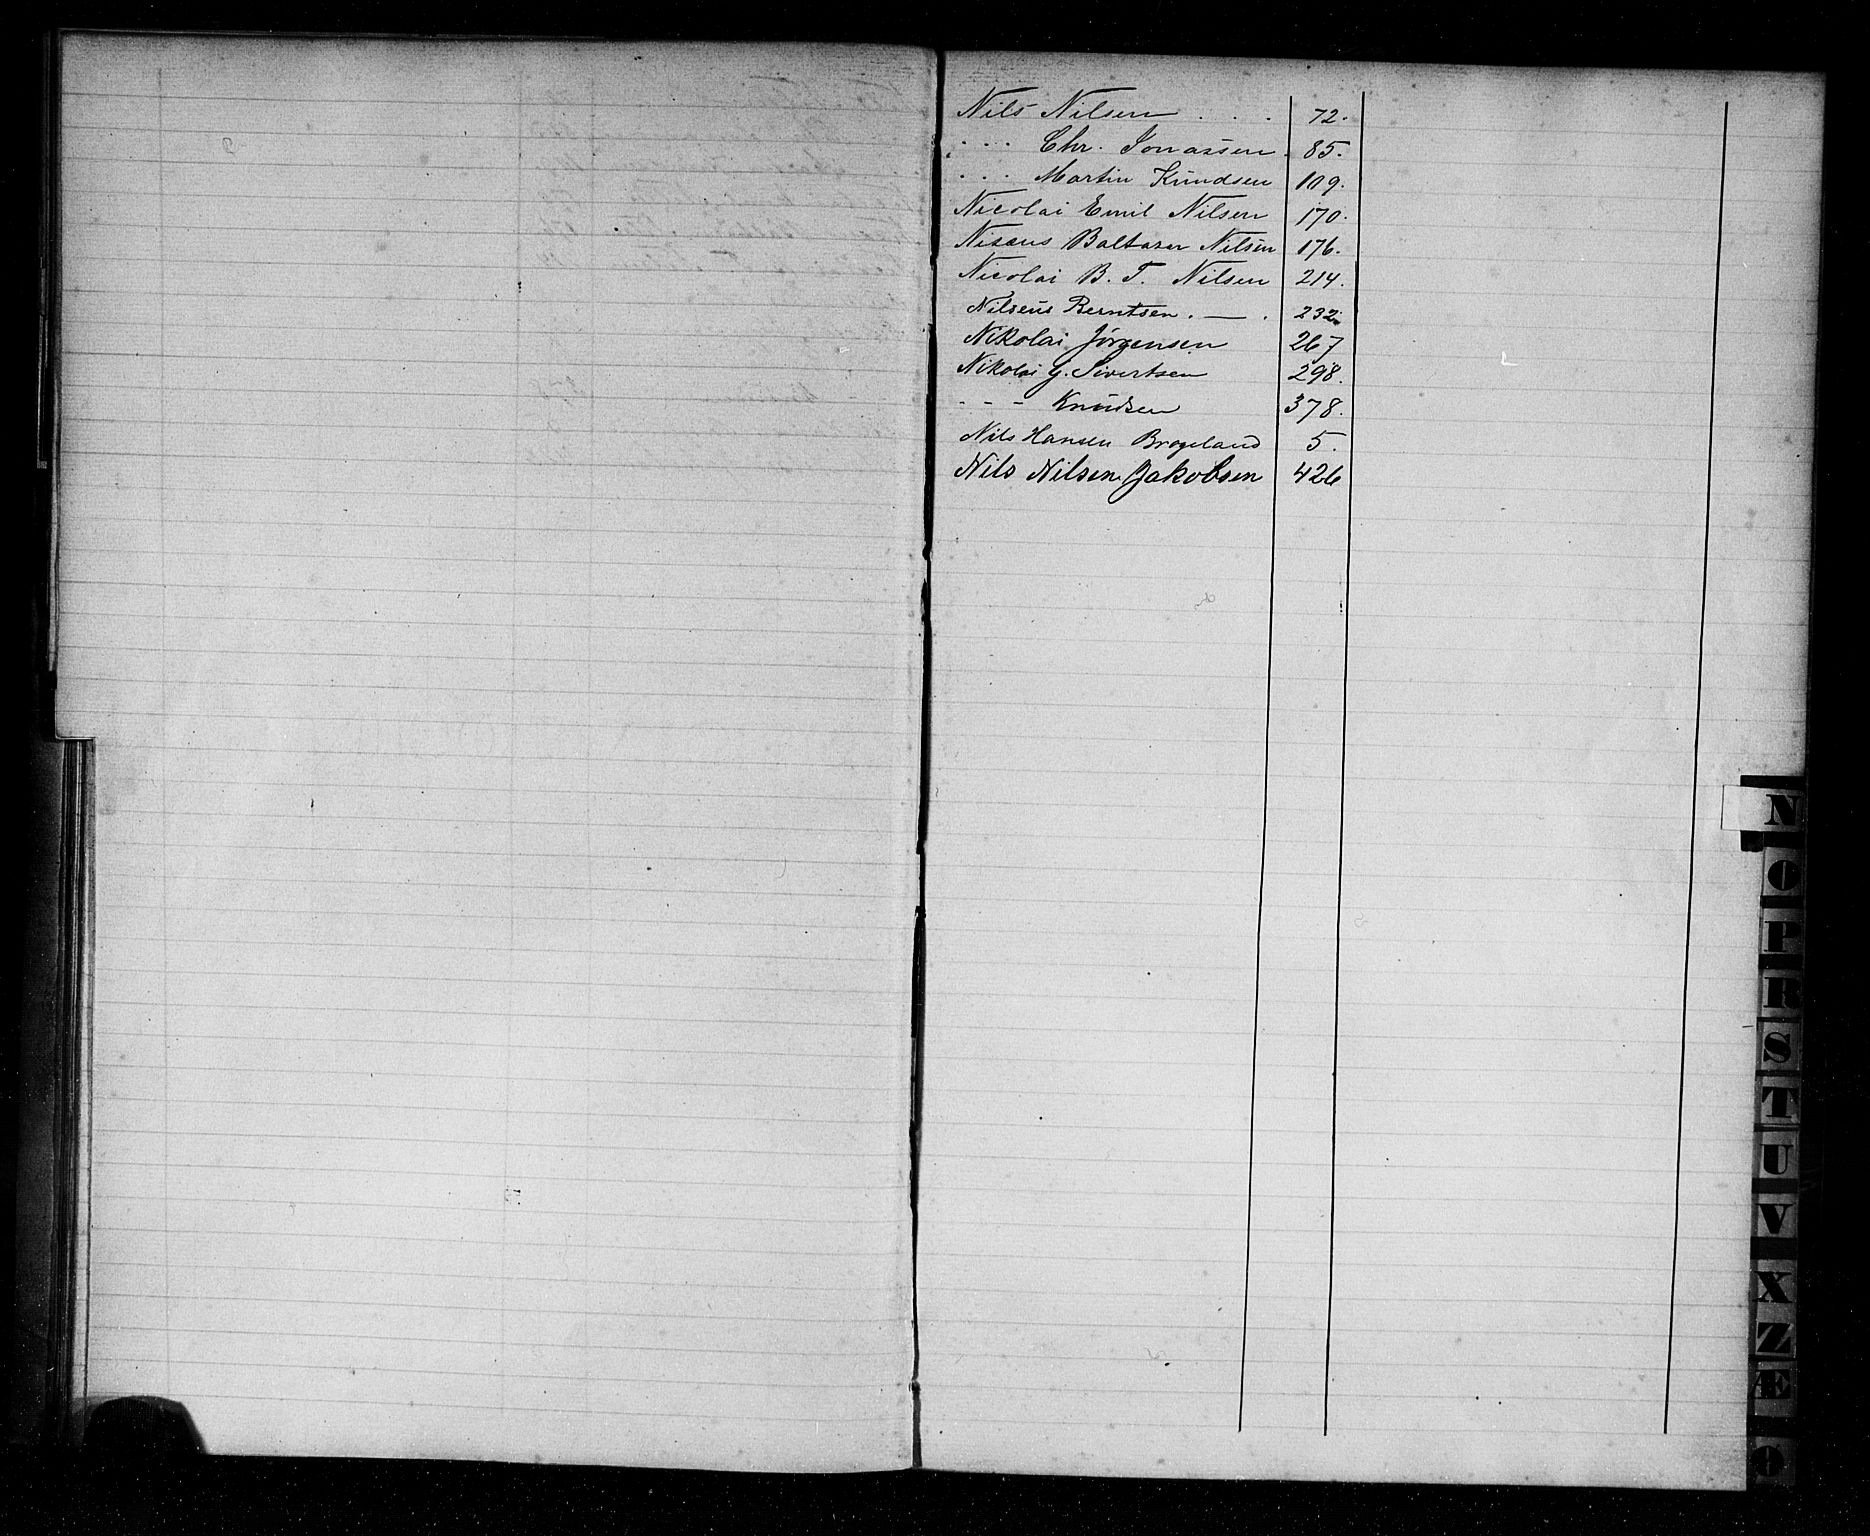 Nils Nilsen . . . 72.
- - - Chr. Jonassen. 85.
- - - Martin Knudsen 109.
Nicolai Emil Nilsen 170.
Nisæus Baltazer Nilsen 176.
Nicolai B. T. Nilsen 214.
Nilseus Berntsen. — . 232.
Nikolai Jørgensen 267
Nikolai G. Sivertsen 298.
- - - Knudsen 378.
Nils Hansen Brogeland 5.
Nils Nilsen Jakobsen 426
N
O
P
R
S
T
U
V
X
Z
Æ
Ø